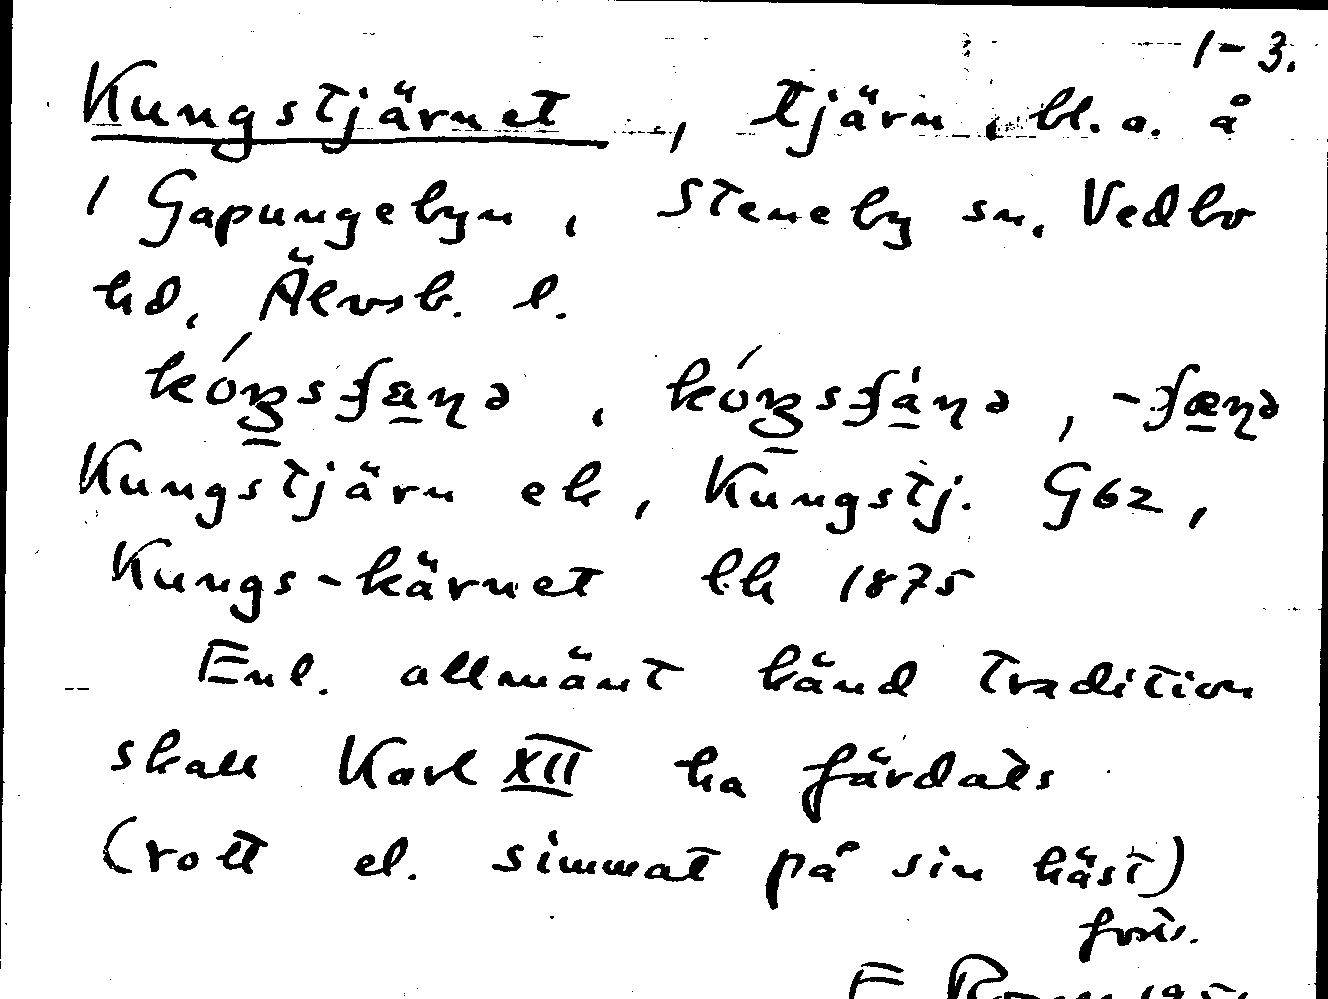 1-3.
Kungstjärnet, tjärn, bl. a. å
1 Gapungebyn, Steneby sn, Vedbo
hd, Älvsb. l.
Kungstjärn ek, Kungstj. G62,
Kungs-kärnet lk 1875
Enl. allmänt känd tradition
skall Karl XII ha färdats
(rott el. simmat på sin häst)
forts.
E